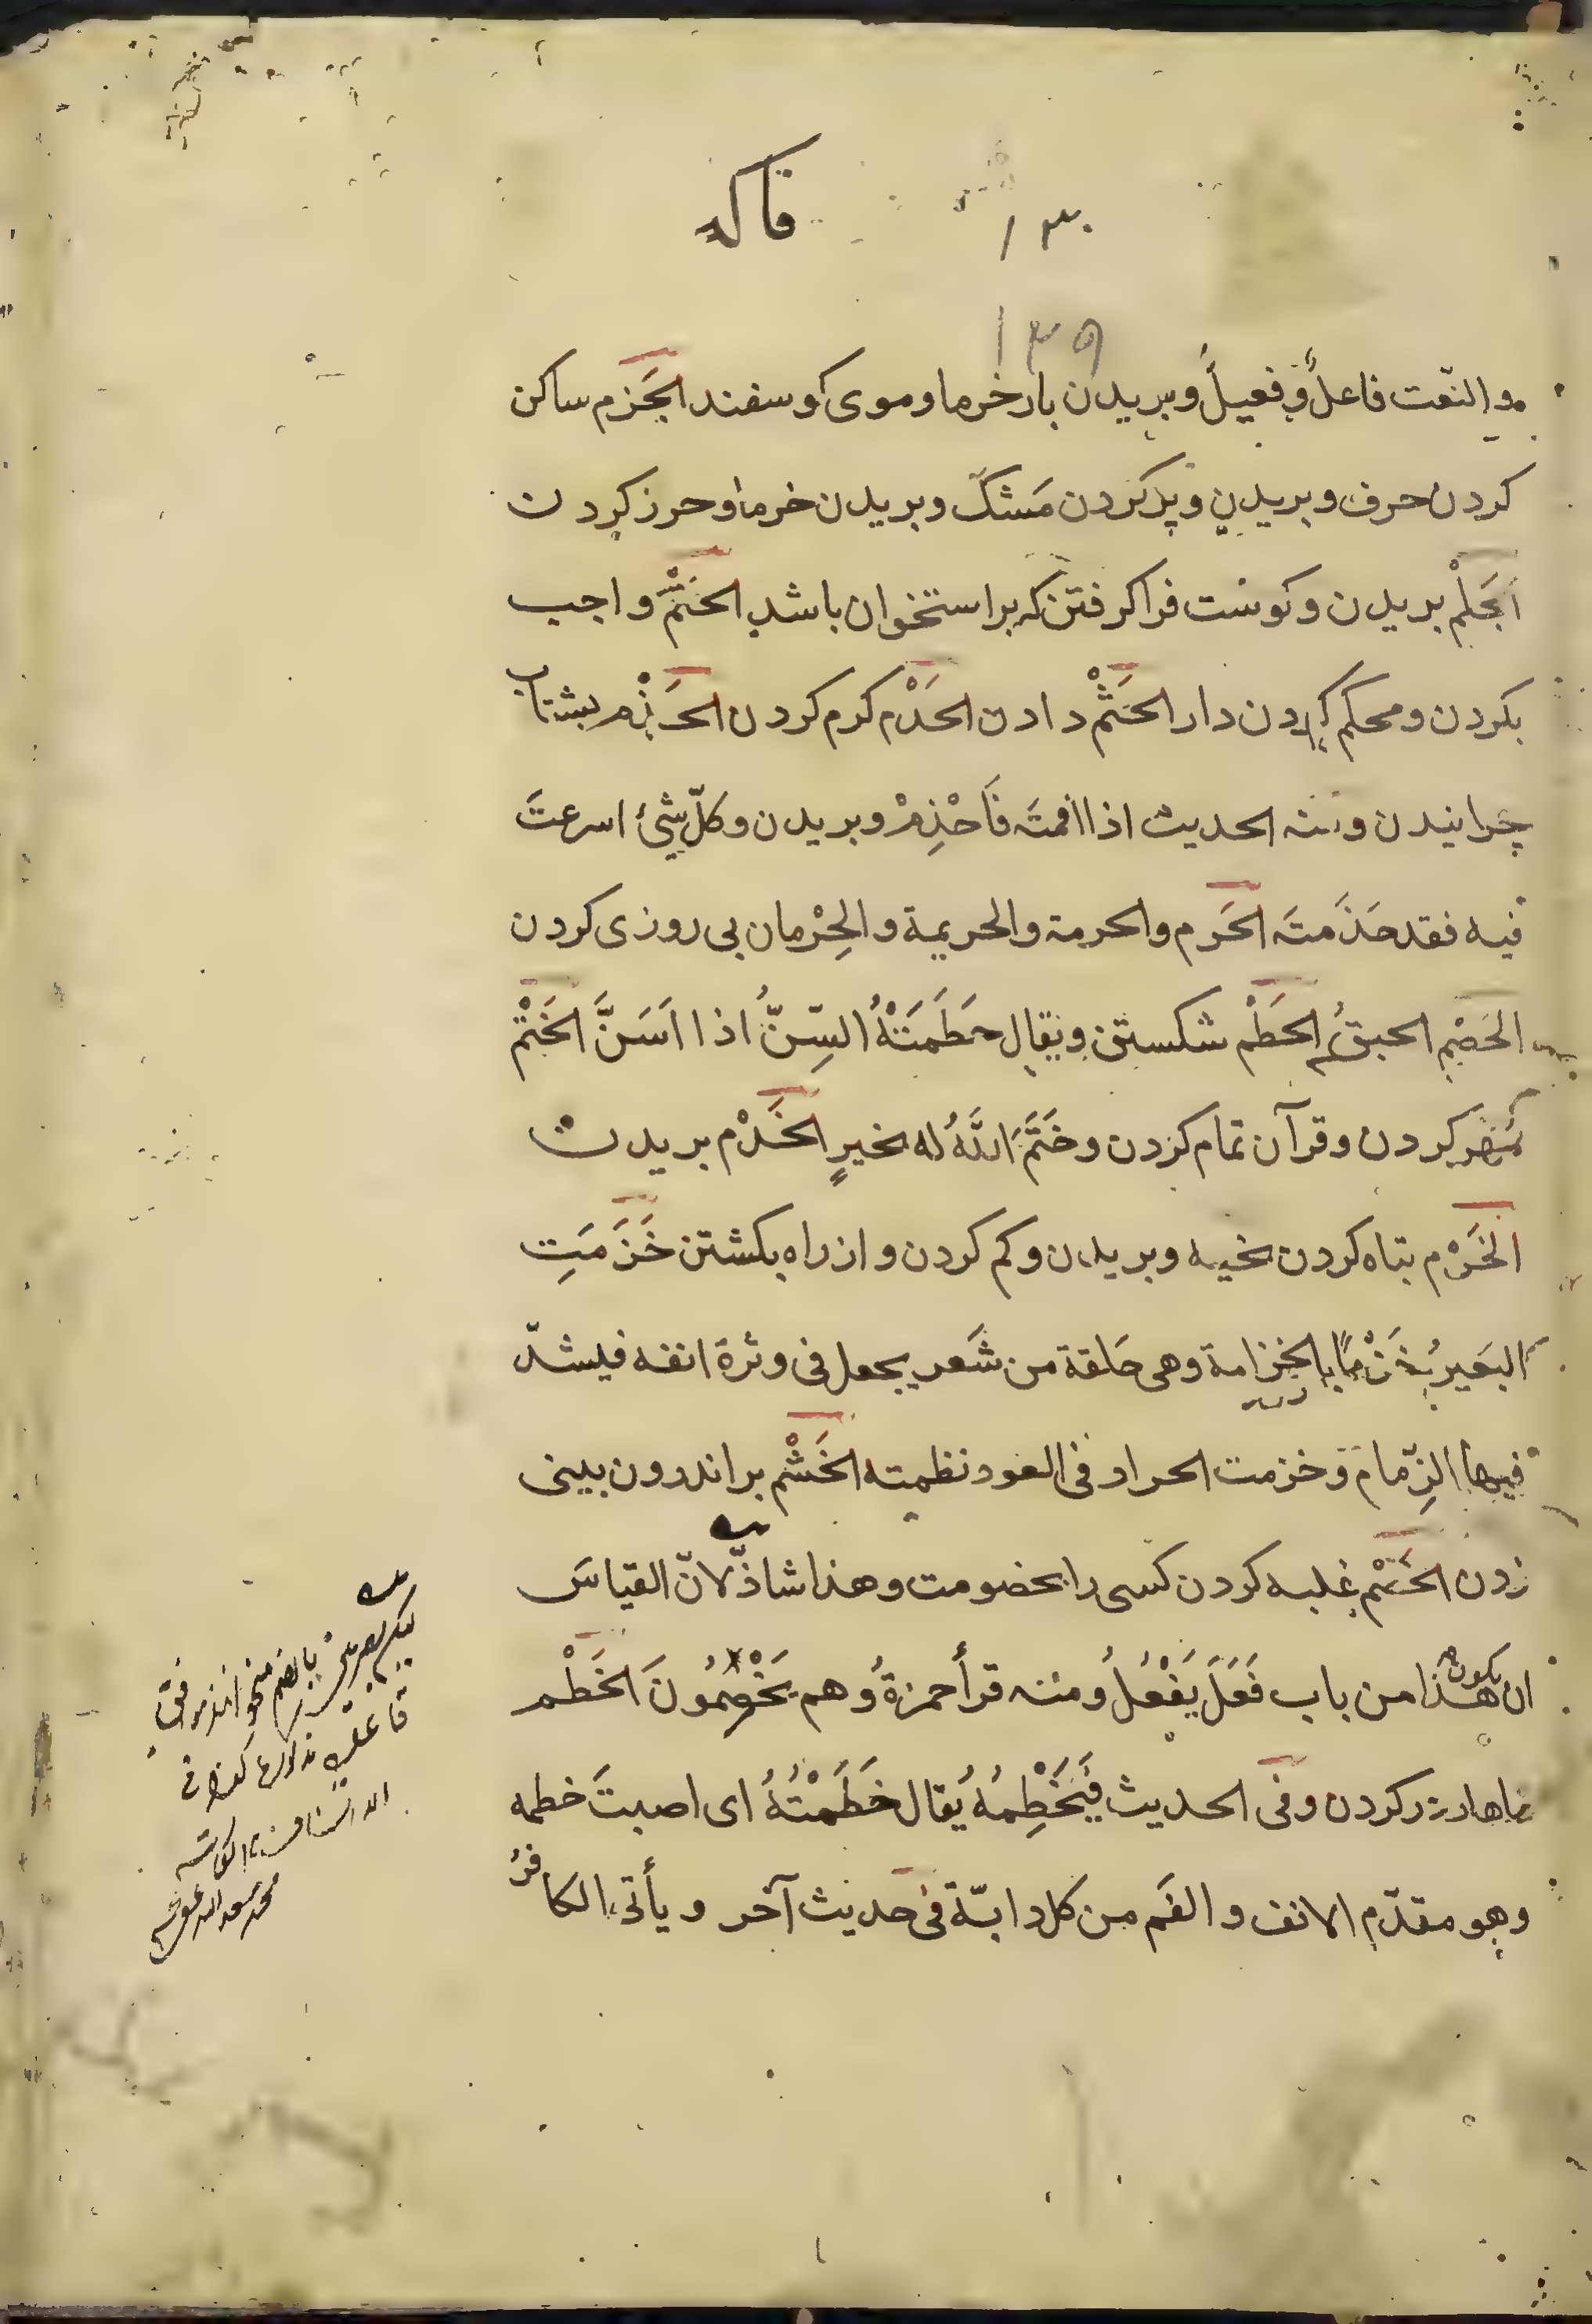 فاكه
١٣٠
١٣٥
والنّعت فاعلٌ وفعيلٌ وبریدن بار خرما وموی کوسفند الجَزم ساکن
کردن حرف وبریدن وپر کردن مَشک وبریدن خرما وحرز کردن
الجَلْم بریدن وکوشت فرا کرفتن که بر استخوان باشد الحَتْم واجب
بکردن ومحکم کردن دار الحَثْم دادن الحَدْم کرم کردن الحَذْم بشتاب
چرانیدن ومنه الحدیث اذا اقمتَ فَاحْذِمْ وبریدن وکلّ شئ اسرعتَ
فیه فقد حَذَمتَه الحَرم والحرمة والحریمة والحِرْمان بی روزی کردن
الحَصْم الحبقُ الحَطْم شکستن ویقال حَطَمَتْهُ السِّنُّ اذا اَسَنَّ الخَتْم
مُهر کردن وقرآن تمام کردن وخَتَمَ اللّهُ له بخیرٍ الخَذْم بریدن
الخَرْم تباه کردن بخیه وبریدن وکم کردن واز راه بکشتن خَزَمَتِ
البَعیرُ خَزْمًا بالخِزامة وهی حَلقة من شَعر یجعل فی وترة انفه فیشدّ
فیها الزِّمام وخزمت الجراد فی العود نظمته الخَشْم بر اندرون بینی
زدن الخَصْم غلبه کردن کسی را بخصومت وهذا شاذّ لانّ القیاسَ
ان یکون هذا من باب فَعَلَ یَفْعُلُ ومنه قرأ حمزةُ وهم یَخْصِمُونَ الخَطْم
مهار در کردن وفی الحدیث فَیَخْطِمُهُ یُقال خَطَمْتُهُ ای اصبتَ خطمه
وهو مقدّم الانف والفَم من کل دابّة فی حدیث آخر ویأتی الکافرُ